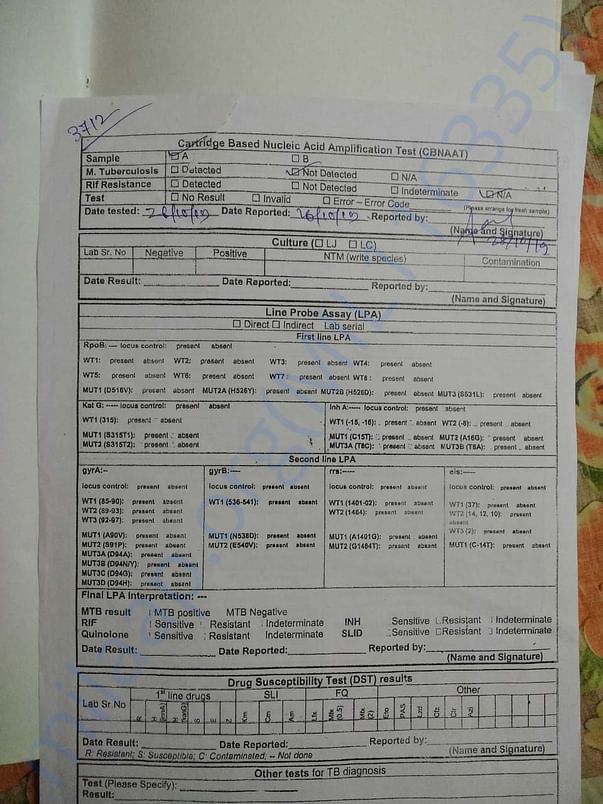 3712
Cartridge Based Nucleic Acid Amplification Test (CBNAAT)
Sample A B
M. Tuberculosis Detected Not Detected N/A
Rif Resistance Detected Not Detected Indeterminate N/A
Test No Result Invalid Error – Error Code (Please arrange for fresh sample)
Date tested: 26/10/19 Date Reported: 26/10/19 Reported by:
(Name and Signature)
Culture ( LJ LC)
Lab Sr. No Negative Positive NTM (write species) Contamination
Date Result: Date Reported: Reported by:
(Name and Signature)
Line Probe Assay (LPA)
Direct Indirect Lab serial
First line LPA
RpoB: --- locus control: present absent
WT1: present absent WT2: present absent WT3: present absent WT4: present absent
WT5: present absent WT6: present absent WT7 : present absent WT8 : present absent
MUT1 (D516V): present absent MUT2A (H526Y): present absent MUT2B (H526D): present absent MUT3 (S531L): present absent
Kat G: ----- locus control: present absent
WT1 (315): present absent
MUT1 (S315T1): present absent
MUT2 (S315T2): present absent
Inh A:----- locus control: present absent
WT1 (-15, -16): present absent WT2 (-8): present absent
MUT1 (C15T): present absent MUT2 (A16G): present absent
MUT3A (T8C): present absent MUT3B (T8A): present absent
Second line LPA
gyrA:--
locus control: present absent
WT1 (85-90): present absent
WT2 (89-93): present absent
WT3 (92-97): present absent
MUT1 (A90V): present absent
MUT2 (S91P): present absent
MUT3A (D94A): present absent
MUT3B (D94N/Y): present absent
MUT3C (D94G): present absent
MUT3D (D94H): present absent
gyrB:----
locus control: present absent
WT1 (536-541): present absent
MUT1 (N538D): present absent
MUT2 (E540V): present absent
rrs:----
locus control: present absent
WT1 (1401-02): present absent
WT2 (1484): present absent
MUT1 (A1401G): present absent
MUT2 (G1484T): present absent
eis:-----
locus control: present absent
WT1 (37): present absent
WT2 (14, 12, 10): present
absent
WT3 (2): present absent
MUT1 (C-14T): present absent
Final LPA Interpretation: ---
MTB result MTB positive MTB Negative
RIF Sensitive Resistant Indeterminate INH Sensitive Resistant Indeterminate
Quinolone Sensitive Resistant Indeterminate SLID Sensitive Resistant Indeterminate
Date Result: Date Reported: Reported by:
(Name and Signature)
Drug Susceptibility Test (DST) results
Lab Sr.No 1st line drugs SLI FQ Other
R H S E Z Km Cm Am Lfx Mfx (0.5) Mfx (2) Eto PAS Lzd Cfz Clr Azi
Date Result: Date Reported: Reported by:
(Name and Signature)
R: Resistant; S: Susceptible; C: Contaminated; -- Not done
Other tests for TB diagnosis
Test (Please Specify):
Result: